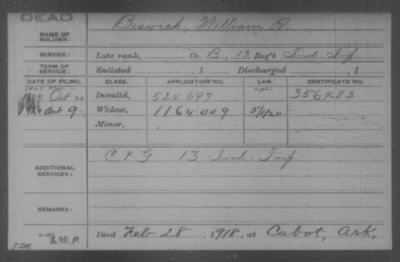 DEAD
NAME OF SOLDIER: Beswick, William R.
SERVICE: Late rank, Co. B, 13 Reg't Ind. Inf.
TERM OF SERVICE: Enlisted 1 Discharged 1
DATE OF FILING. CLASS. APPLICATION NO. LAW. CERTIFICATE NO.
Oct Invalid, 356483
Oct 9 Widow, 1164009
Minor,
ADDITIONAL SERVICES: C & G 13 Ind. Inf
REMARKS:
Died Feb 28, 1918, at Cabot, Ark.